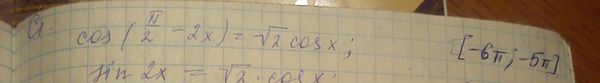 a. cos(π/2 - 2x) = √2 cosx; [-6π; -5π]
sin 2x = √2 · cosx